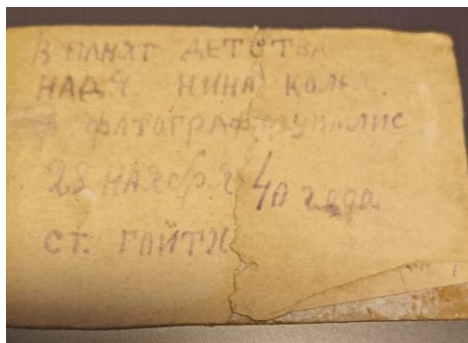 В ПАМЯТ ДЕТСТВА
НАДЯ НИНА КОЛЬЯ.
ФАТОГРАФИРУВАЛИС
28 НАЯбРЯ 40 года
СТ. ГОЙТХ